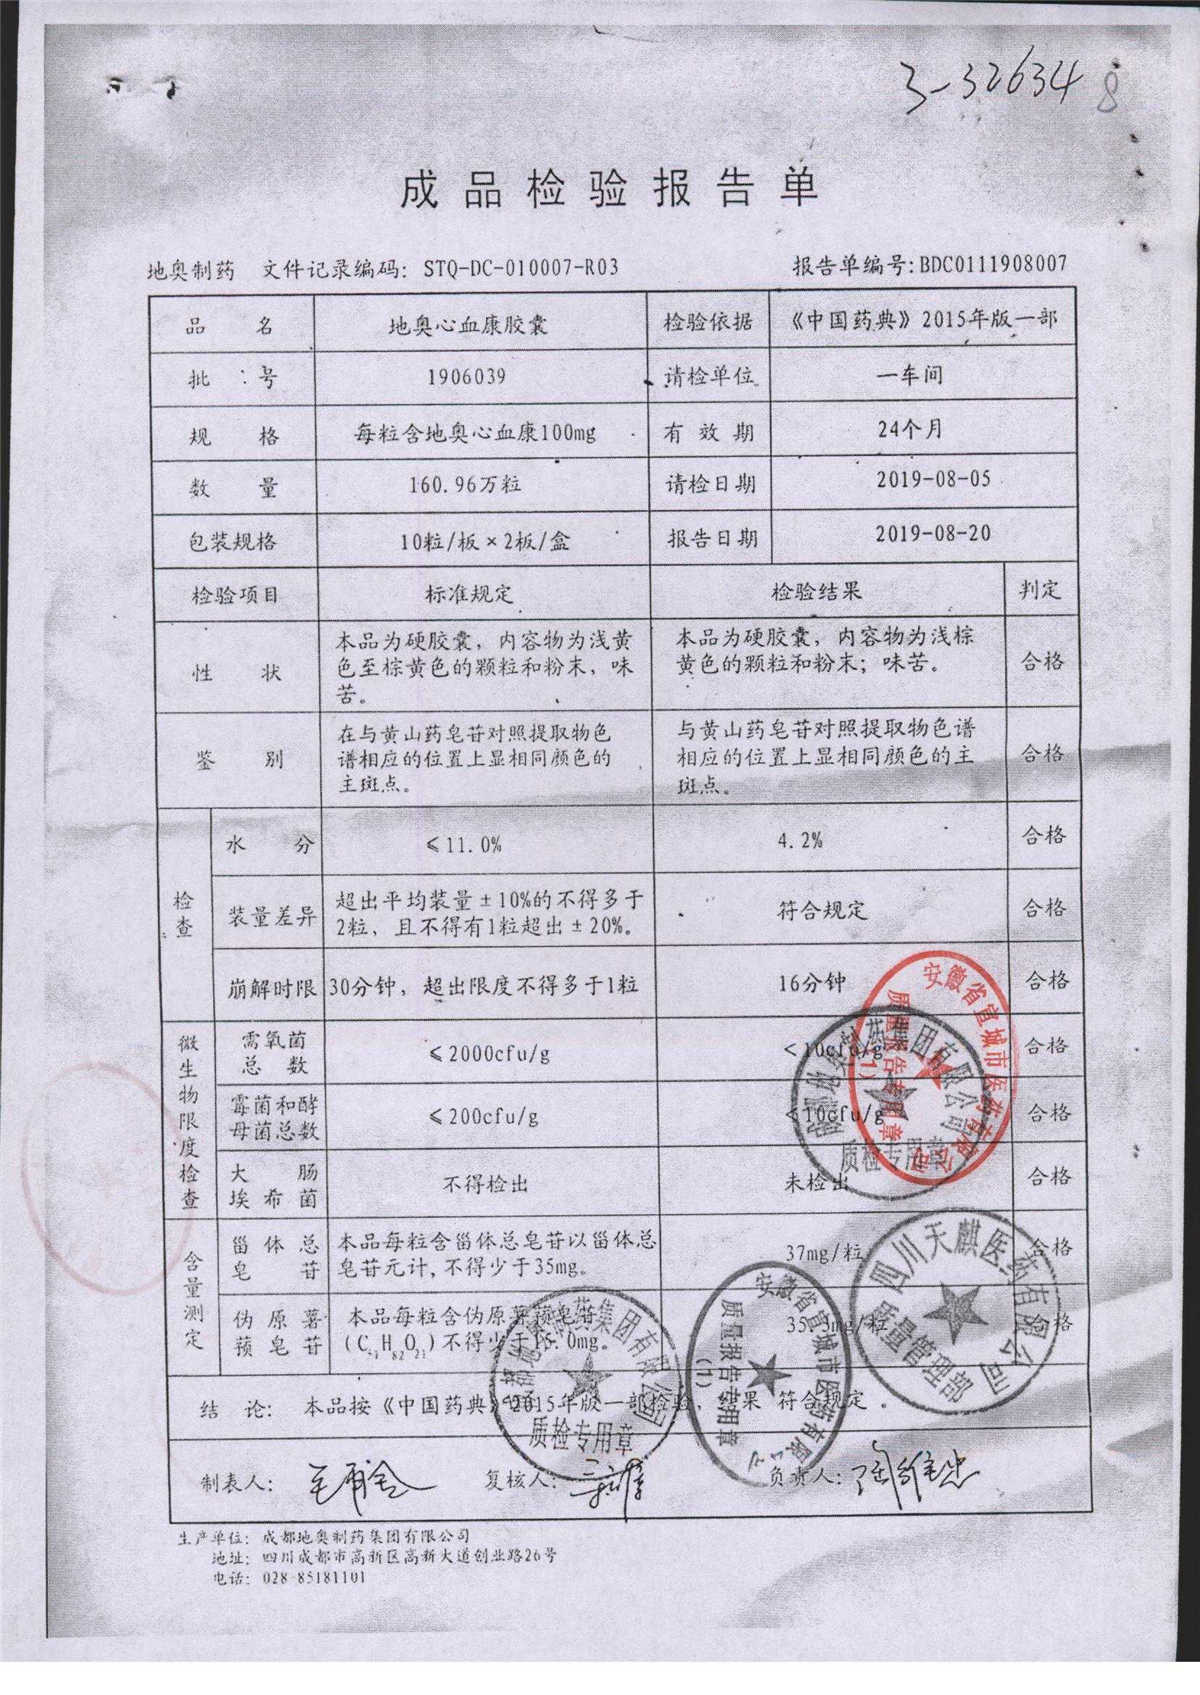 3-32634 8
成品检验报告单
地奥制药 文件记录编码: STQ-DC-010007-R03 报告单编号:BDC0111908007
品 名 地奥心血康胶囊 检验依据 《中国药典》2015年版一部
批 号 1906039 请检单位 一车间
规 格 每粒含地奥心血康100mg 有 效 期 24个月
数 量 160.96万粒 请检日期 2019-08-05
包装规格 10粒/板×2板/盒 报告日期 2019-08-20
检验项目 标准规定 检验结果 判定
性 状
本品为硬胶囊，内容物为浅黄
色至棕黄色的颗粒和粉末，味
苦。
本品为硬胶囊，内容物为浅棕
黄色的颗粒和粉末；味苦。
合格
鉴 别
在与黄山药皂苷对照提取物色
谱相应的位置上显相同颜色的
主斑点。
与黄山药皂苷对照提取物色谱
相应的位置上显相同颜色的主
斑点。
合格
检查
水 分 ≤11.0% 4.2% 合格
装量差异
超出平均装量±10%的不得多于
2粒，且不得有1粒超出±20%。
符合规定 合格
崩解时限 30分钟，超出限度不得多于1粒 16分钟 合格
微生物限度检查
需氧菌
总 数
≤2000cfu/g <10cfu/g 合格
霉菌和酵
母菌总数
≤200cfu/g <10cfu/g 合格
大 肠
埃希菌
不得检出 未检出 合格
含量测定
甾体总
皂 苷
本品每粒含甾体总皂苷以甾体总
皂苷元计,不得少于35mg。
37mg/粒 合格
伪原薯
蓣皂苷
本品每粒含伪原薯蓣皂苷
(C51H82O21)不得少于15.0mg。
合格
结 论: 本品按《中国药典》2015年版一部检验，结果 符合规定。
制表人: 复核人: 负责人:
生产单位: 成都地奥制药集团有限公司
地址: 四川成都市高新区高新大道创业路26号
电话: 028-85181101
安徽省宣城市医药有限公司
质量报告专用章
(1)
成都地奥制药集团有限公司
质检专用章
四川天麒医药有限公司
质量管理部
安徽省宣城市医药有限公司
质量报告专用章
(1)
成都地奥制药集团有限公司
质检专用章